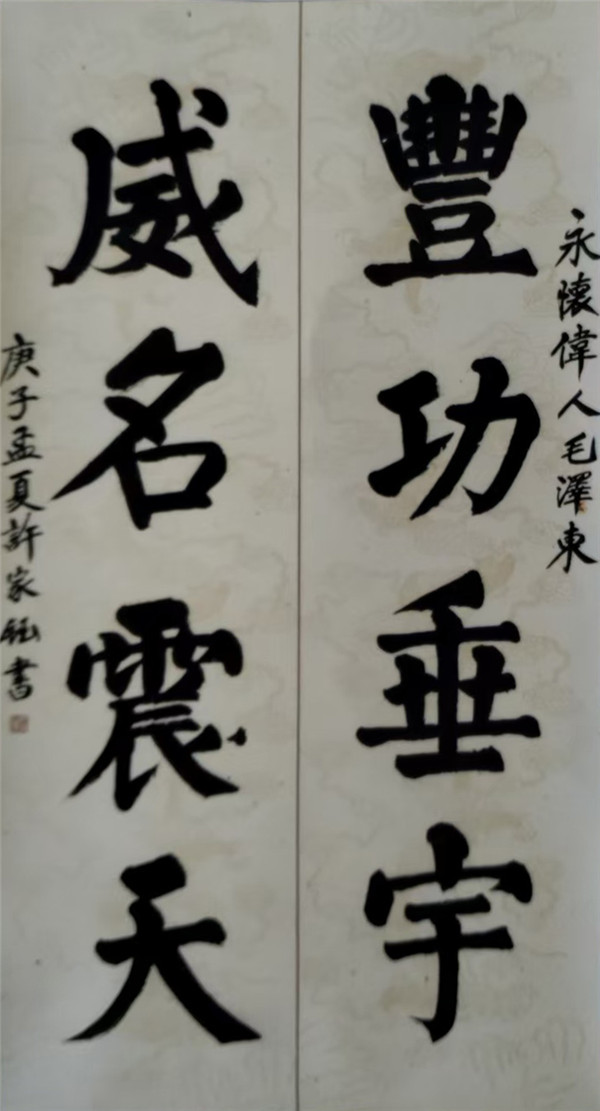 永懷偉人毛澤東
豐功垂宇
威名震天
庚子孟夏許家鈺書